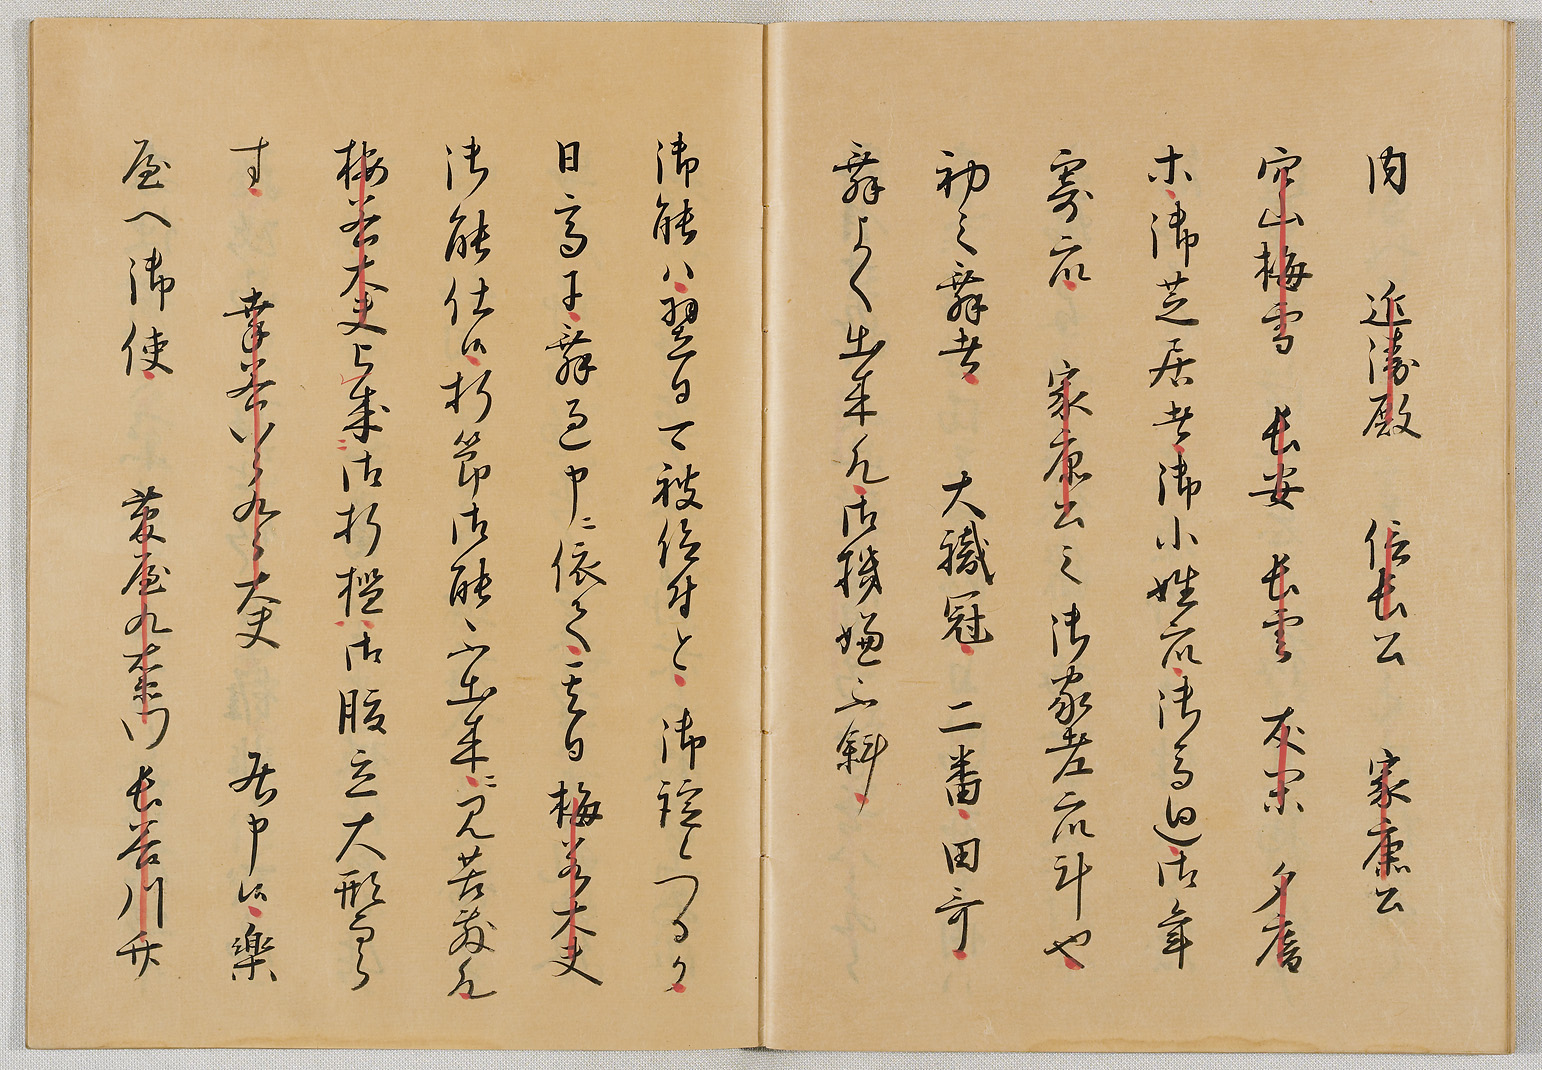 内　近衛殿　信長公　家康公
穴山梅雪　長安　長雲　友閑　夕庵
等御芝居者御小姓衆御馬廻御年
寄衆　家康公之御家老衆計也
初之舞者　大織冠　二番　田哥
舞よく出来候御機嫌不斜
御能ハ翌日可被仰付と御諚候つるか
日高に舞過申ニ依て其日梅若大夫
御能仕候折節御能不出来ニ見苦敷候
梅若大夫被成ニ御折檻ハ御腹立大形なら
す　幸若八郎九郎大夫　居申候楽
屋へ御使　菅屋九右衛門　長谷川竹